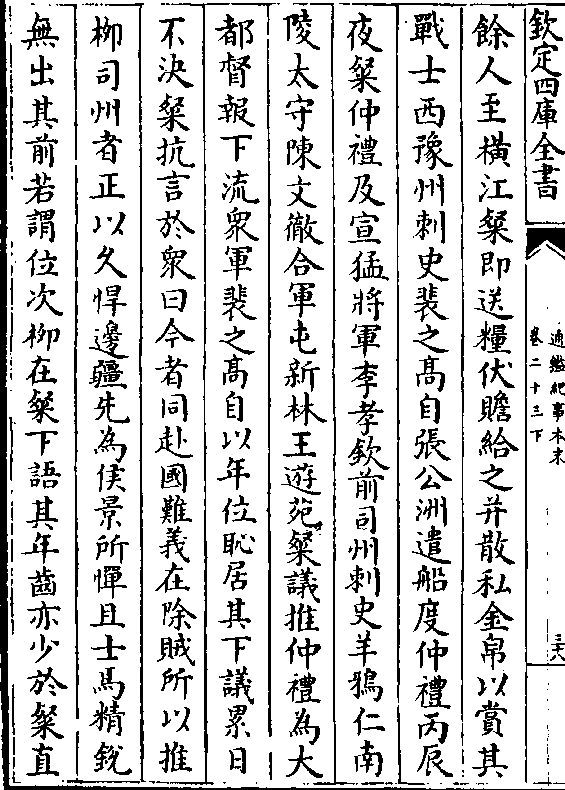 欽定四庫全書
通鑑紀事本末
卷二十三下
三十八
餘人至橫江粲即送糧仗贍給之并散私金帛以賞其
戰士西豫州刺史裴之髙自張公洲遣船度仲禮丙辰
夜粲仲禮及宣猛將軍李孝欽前司州刺史羊鴉仁南
陵太守陳文徹合軍屯新林王遊苑粲議推仲禮為大
都督報下流衆軍裴之髙自以年位恥居其下議累日
不決粲抗言於衆曰今者同赴國難義在除賊所以推
柳司州者正以久悍邊疆先為侯景所憚且士馬精銳
無出其前若謂位次柳在粲下語其年齒亦少於粲直